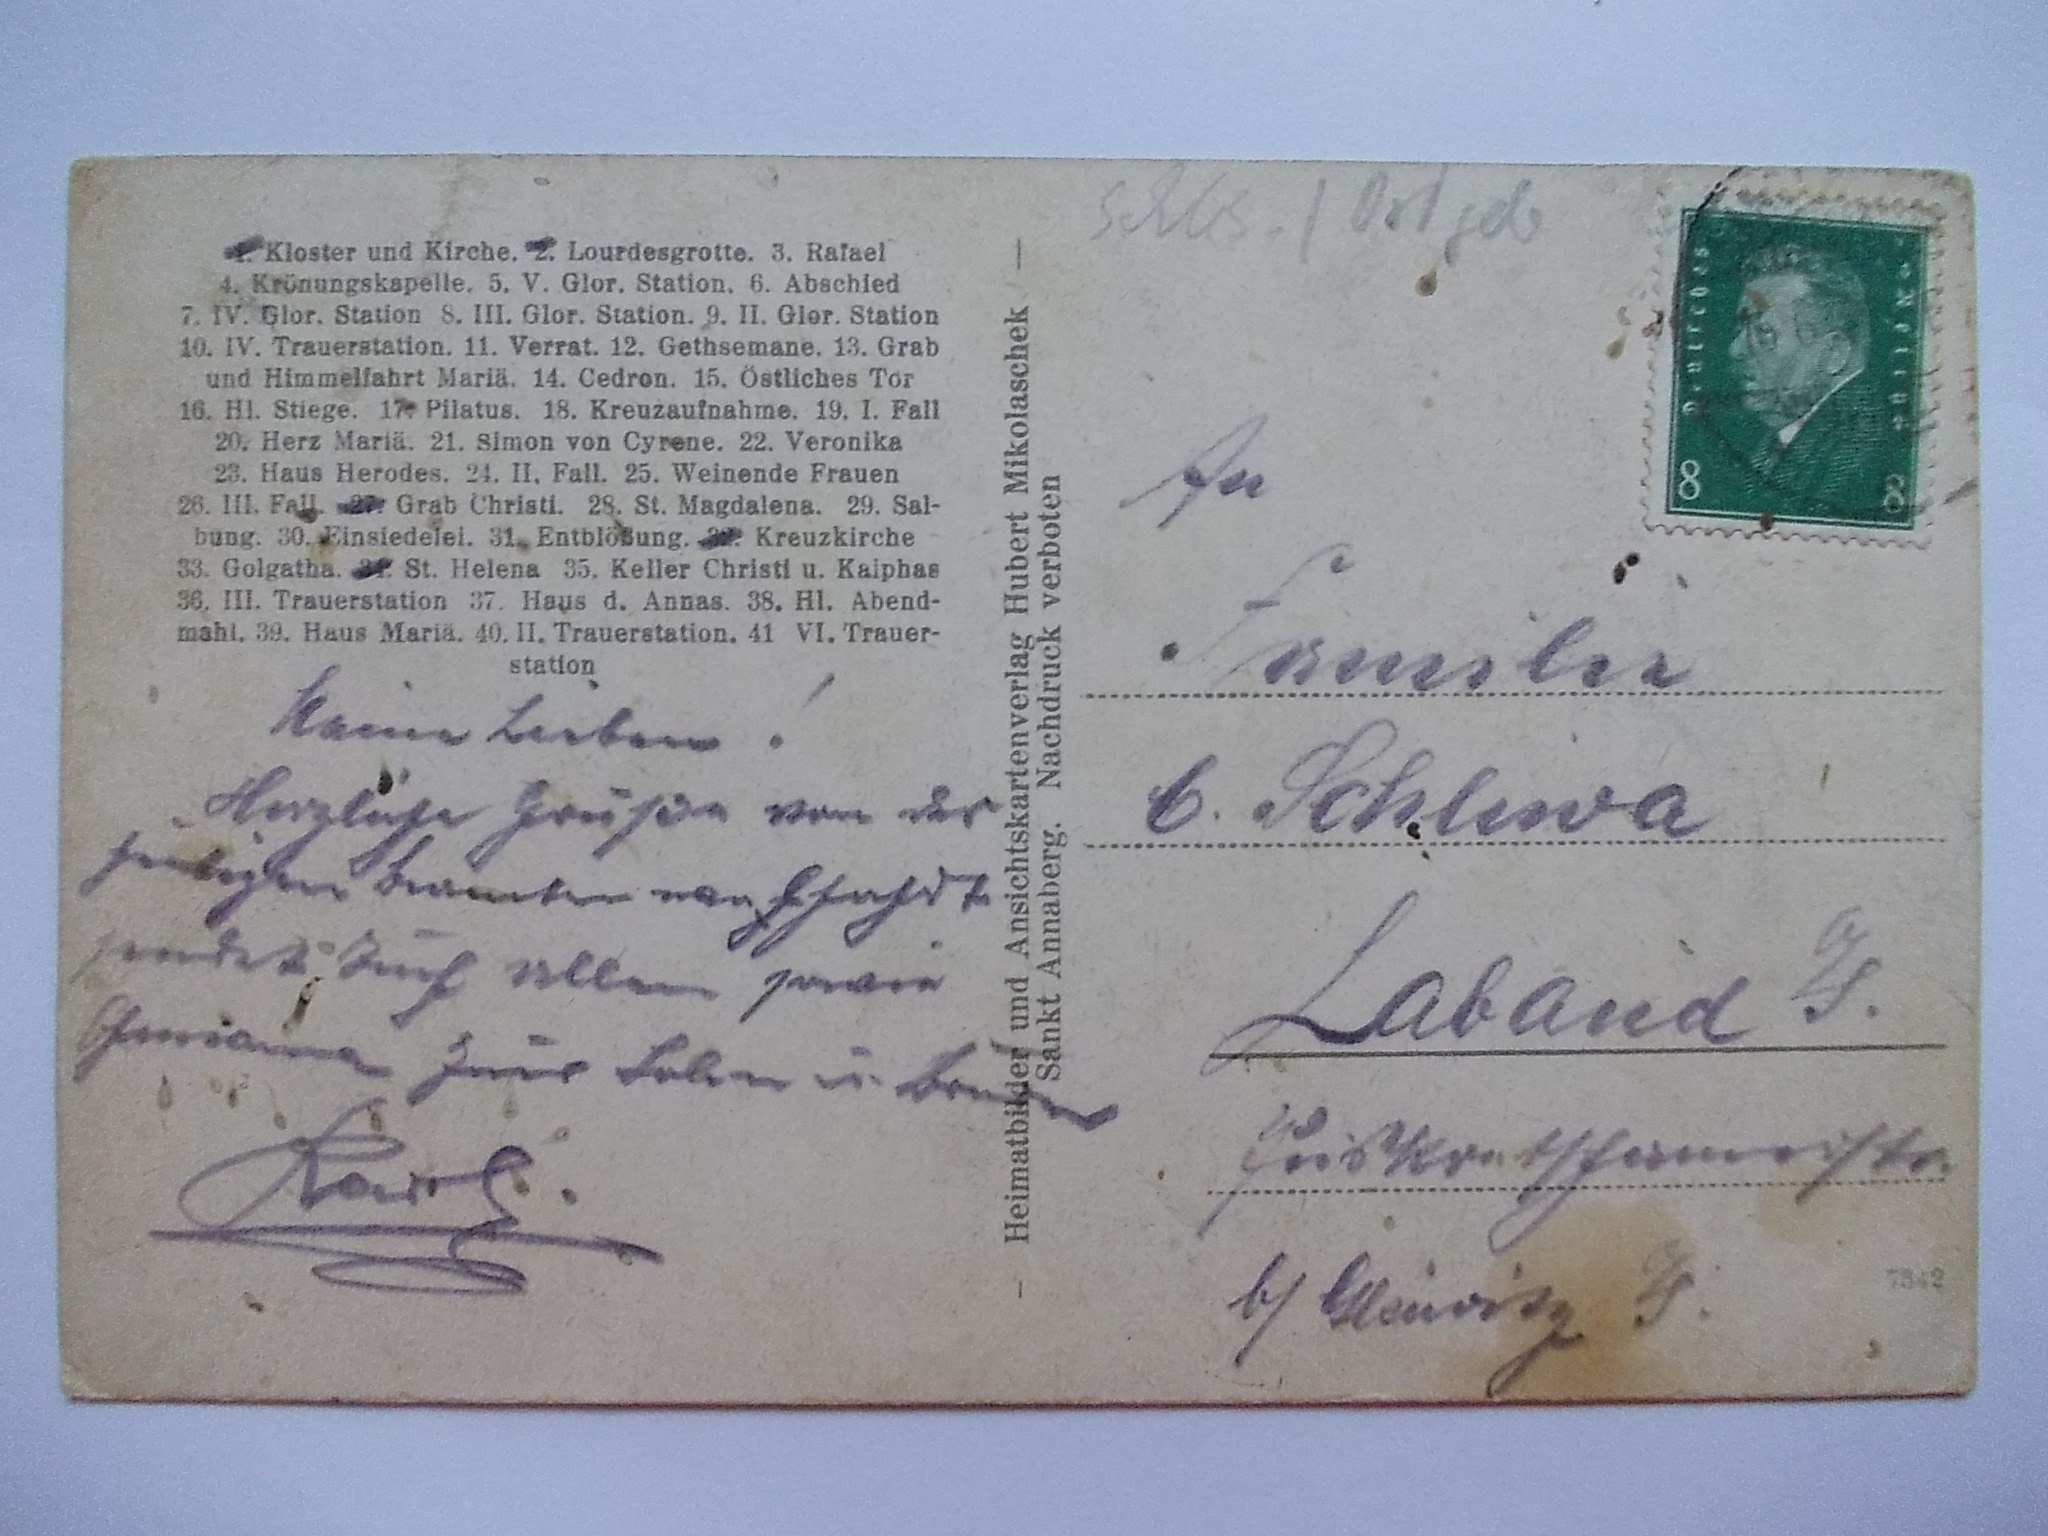 1. Kloster und Kirche. 2. Lourdesgrotte. 3. Rafael
4. Krönungskapelle. 5. V. Glor. Station. 6. Abschied
7. IV. Glor. Station 8. III. Glor. Station. 9. II. Glor. Station
10. IV. Trauerstation. 11. Verrat. 12. Gethsemane. 13. Grab
und Himmelfahrt Mariä. 14. Cedron. 15. Östliches Tor
16. Hl. Stiege. 17. Pilatus. 18. Kreuzaufnahme. 19. I. Fall
20. Herz Mariä. 21. Simon von Cyrene. 22. Veronika
23. Haus Herodes. 24. II. Fall. 25. Weinende Frauen
26. III. Fall. 27. Grab Christi. 28. St. Magdalena. 29. Sal-
bung. 30. Einsiedelei. 31. Entblößung. 32. Kreuzkirche
33. Golgatha. 34. St. Helena 35. Keller Christi u. Kaiphas
36. III. Trauerstation 37. Haus d. Annas. 38. Hl. Abend-
mahl. 39. Haus Mariä. 40. II. Trauerstation. 41 VI. Trauer-
station
Meine Lieben!
Herzliche Grüße von der
heutigen Beamten
sendet Euch allen sowie
Euer Sohn u. Bruder
Karl.
– Heimatbilder und Ansichtskartenverlag Hubert Mikolaschek –
Sankt Annaberg. Nachdruck verboten
Schles. /
Deutsches Reich
8 8
An
Familie
C. Schliwa
Laband
b/ Gleiwitz
7342